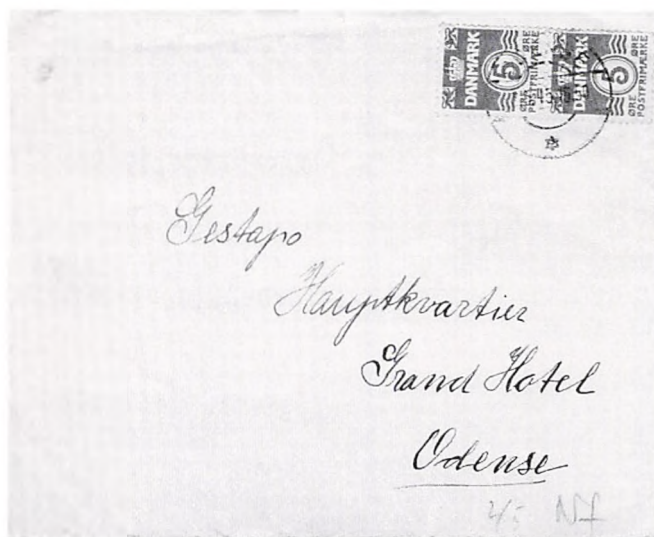 DANMARK
5
ØRE
ØRE
POSTFRIMÆRKE
DANMARK
5
ØRE
ØRE
POSTFRIMÆRKE
Gestapo
Hauptkvartier
Grand Hotel
Odense